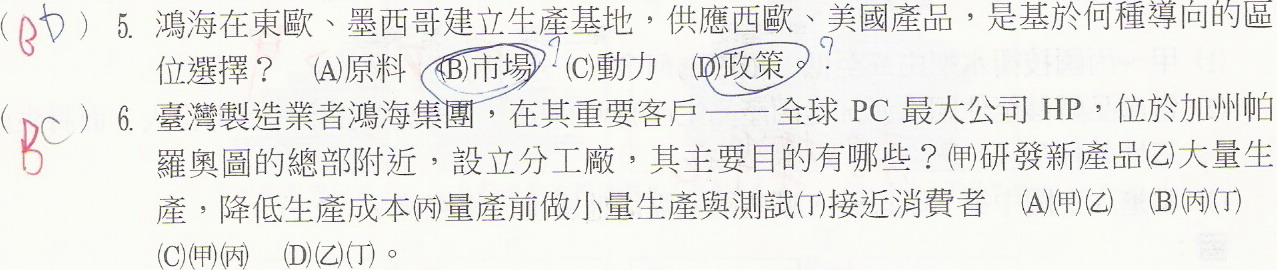 ( B D ) 5. 鴻海在東歐、墨西哥建立生產基地,供應西歐、美國產品,是基於何種導向的區
位選擇? (A)原料 (B)市場? (C)動力 (D)政策。?
( B C ) 6. 臺灣製造業者鴻海集團,在其重要客戶——全球 PC 最大公司 HP,位於加州帕
羅奧圖的總部附近,設立分工廠,其主要目的有哪些?㈙研發新產品㈚大量生
產,降低生產成本㈛量產前做小量生產與測試㈜接近消費者 (A)㈙㈚ (B)㈛㈜
(C)㈙㈛ (D)㈚㈜。